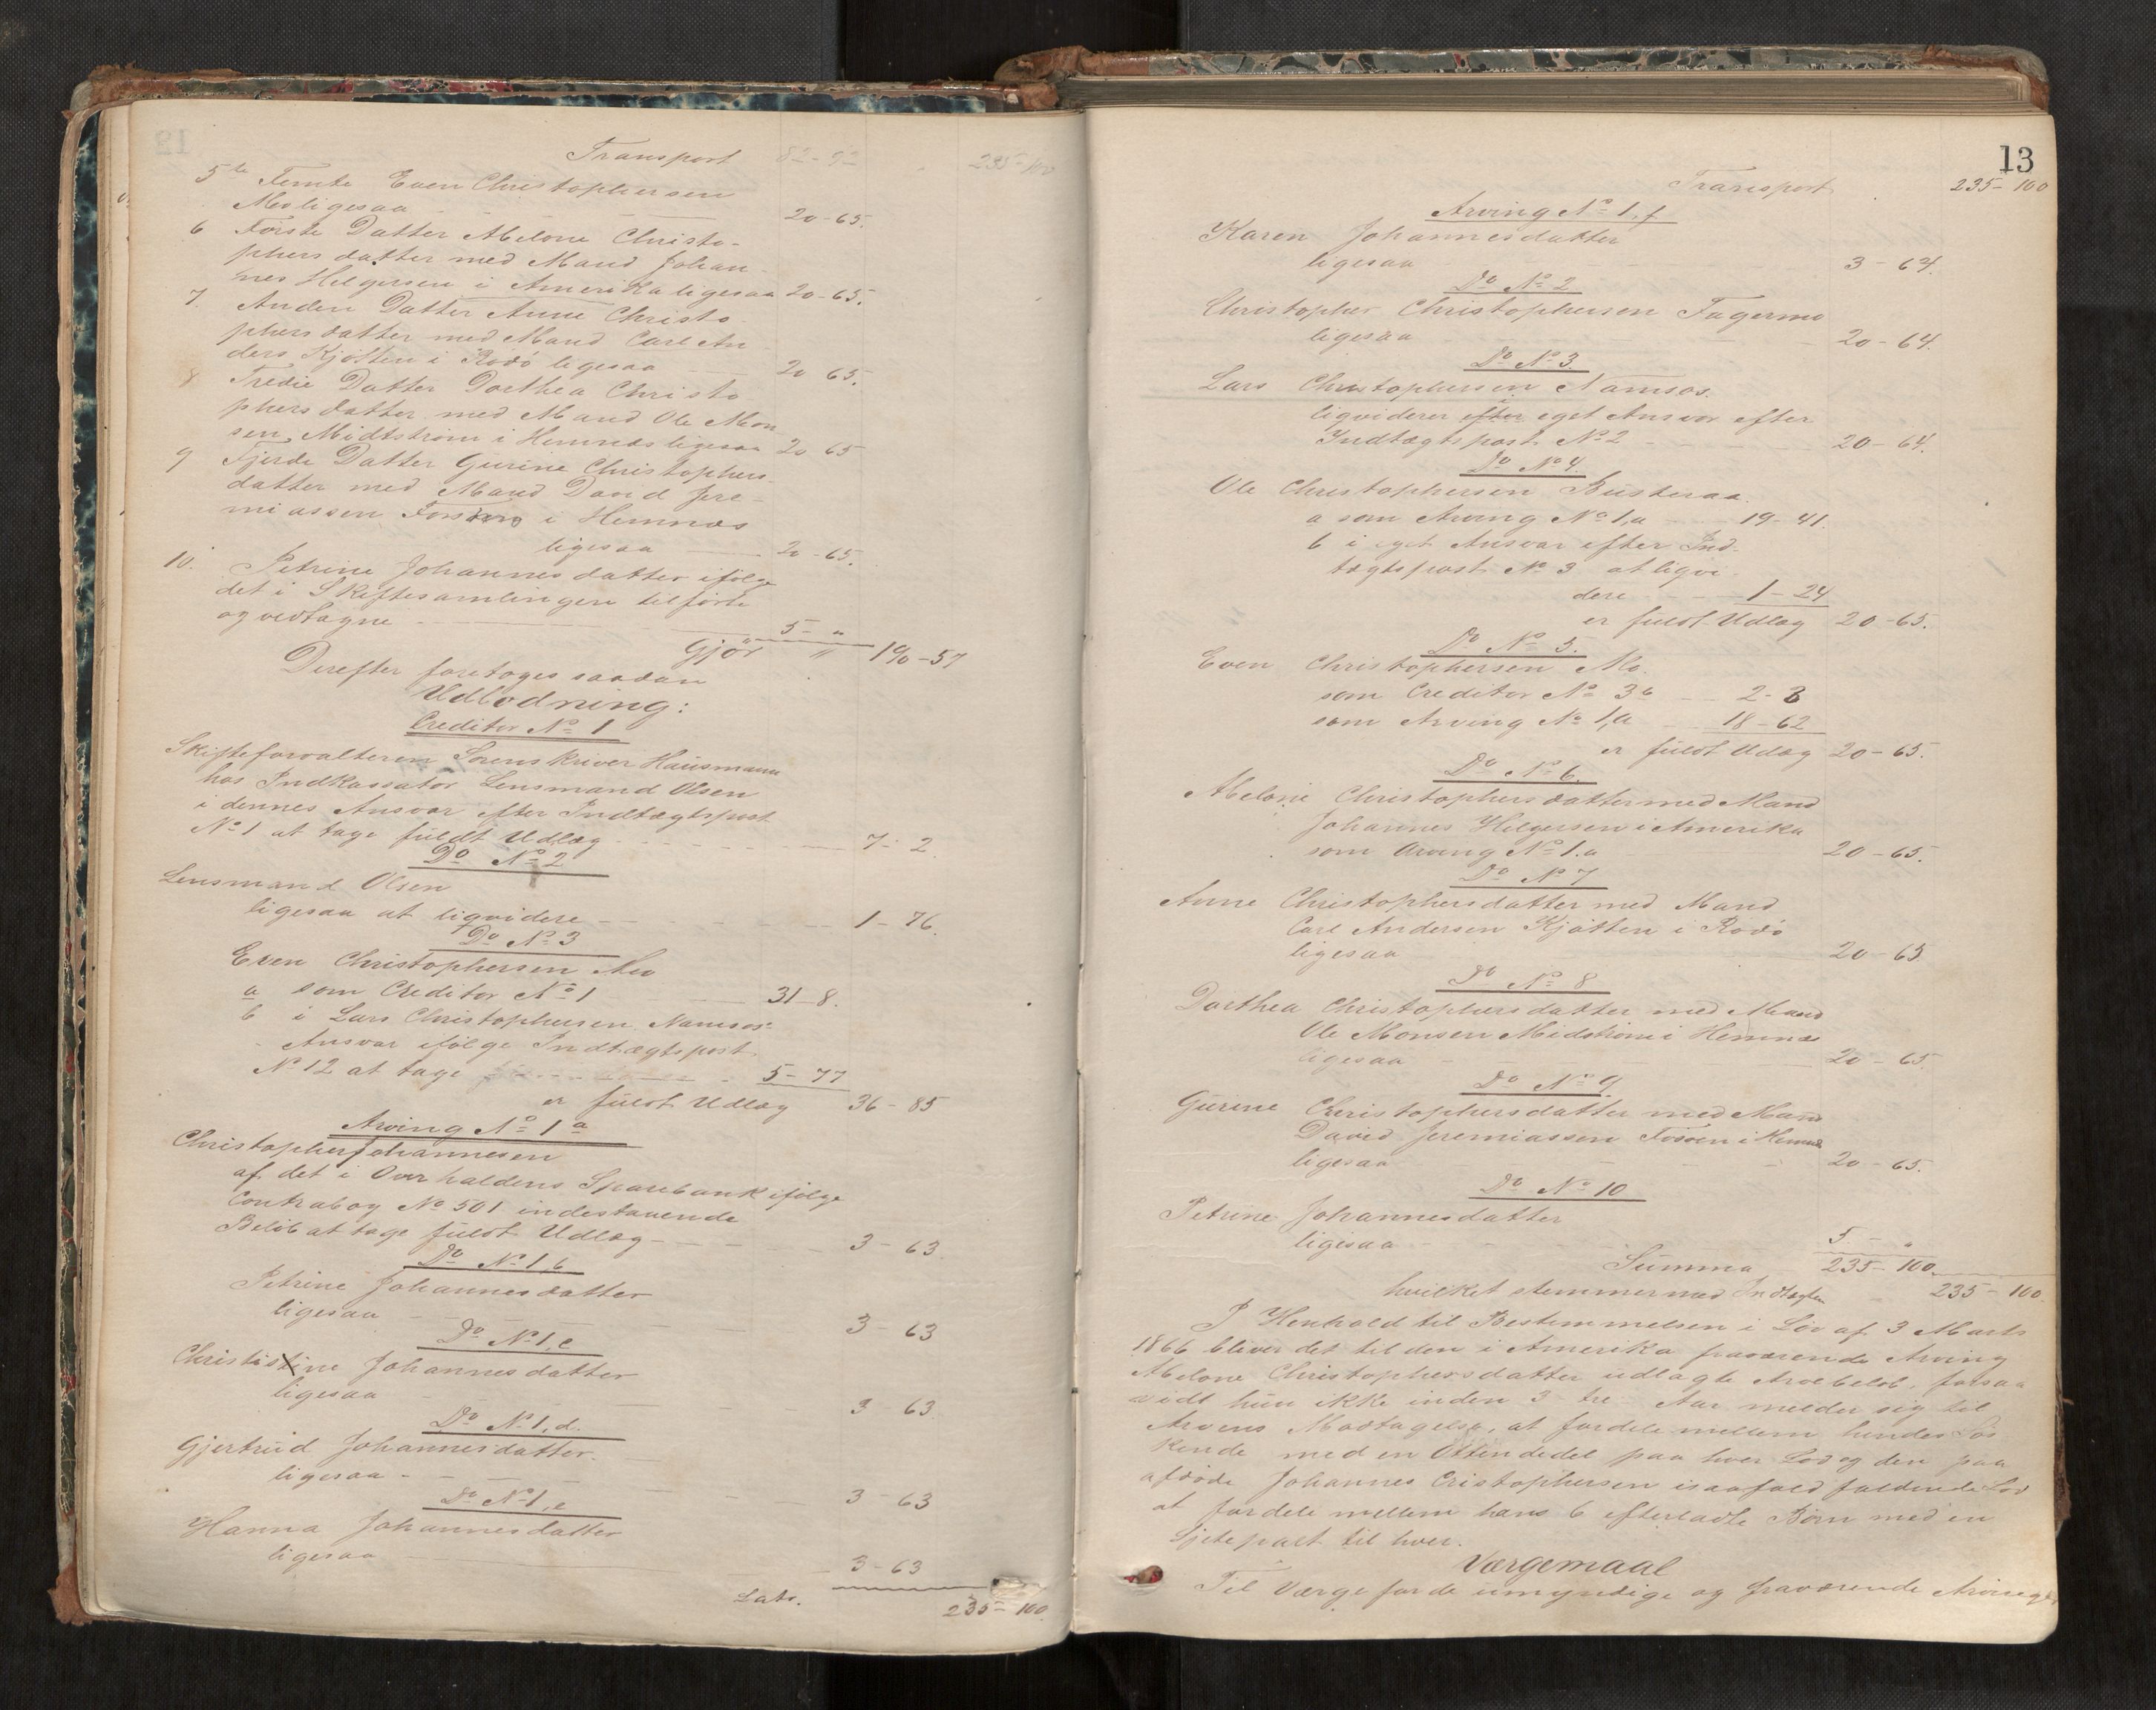 Transport 82-92 235-100
5te Femte Even Christophersen
Mo ligesaa 20-65.
6 Förste Datter Abelone Christo-
phersdatter med Mand Johan-
nes Helgersen i Amerika ligesaa 20-65.
7. Anden Datter Anne Christo-
phersdatter med Mand Carl An-
ders Kjötten i Rödö ligesaa 20 65.
8 Tredie Datter Dorthea Christo
phersdatter med Mand Ole Mon
sen Midtström i Hemnæs ligesaa 20 65
9 Fjerde Datter Gurine Christophers-
datter med Mand David Jere-
miassen i Hemnæs
ligesaa 20-65.
10. Petrine Johannesdatter ifölge
det i Skiftesamlingen tilförte
og vedtagne 5- "
Gjör " 190-57
Derefter foretoges saadan
Udlodning:
Creditor No 1
Skifteforvalteren Sorenskriver Hausmann
hos Indkassator Lensmand Olsen
i dennes Ansvar efter Indtægtspost
No 1 at tage fuldt Udlæg 7-2.
Do No 2
Lensmand Olsen
ligesaa at liqvidere 1-76.
Do No 3
Even Christophersen Mo
a som Creditor No 1 31-8.
b i Lars Christophersen Namsos'
Ansvar ifölge Indtægtspost
No 12 at tage 5-77
er fuldt Udlæg 36-85
Arving No 1 a
Christopher Johannesen
af det i Overhaldens Sparebank ifölge
Contrabog No 501 indestaaende
Belöb at tage fuldt Udlæg 3-63.
Do No 1,b
Petrine Johannesdatter
ligesaa 3-63
Do No 1,c
Christistine Johannesdatter
ligesaa 3 63.
Do No 1,d.
Gjertrud Johannesdatter.
ligesaa 3-63
Do No 1,e
Hanna Johannesdatter
ligesaa 3-63
Lats. 235-100.
13
Transport 235-100
Arving No 1,f
Karen Johannesdatter
ligesaa 3-64.
Do No 2
Christopher Christophersen Fagermo
ligesaa 20-64.
Do No 3.
Lars Christophersen Namsos.
liqviderer efter eget Ansvar efter
Indtægtspost No 2 20-64.
Do No 4.
Ole Christophersen Busteraa.
a som Arving No 1,a 19-41.
b i eget Ansvar efter Ind-
tægtspost No 3 at liqvi-
dere 1-24
er fuldt Udlæg 20-65.
Do No 5.
Even Christophersen Mo.
som Creditor No 3b 2-3
som Arving No 1,a 18-62
er fuldt Udlæg 20-65.
Do No 6.
Abeloni Christophersdatter med Mand
Johannes Helgersen i Amerika
som Arving No 1.a 20-65.
Do No 7
Anne Christophersdatter med Mand
Carl Andersen Kjötten i Rödö
ligesaa 20-65
Do No 8
Dorthea Christophersdatter med Mand
Ole Monsen Midström i Hemnæs
ligesaa 20-65.
Do No 9.
Gurine Christophersdatter med Mand
David Jeremiassen i Hemnæs
ligesaa 20-65.
Do No 10
Petrine Johannesdatter
ligesaa 5- "
Summa 235-100
hvilket stemmer med Indtægten 235-100.
I Henhold til Bestemmelsen i Lov af 3 Marts
1866 bliver det til den i Amerika fraværende Arving
Abelone Christophersdatter udlagte Arvebelöb, forsaa
vidt hun ikke inden 3 tre Aar melder sig til
Arvens Modtagelse, at fordele mellem hendes Søs
kende med en Ottendedel paa hver Lod og den paa
afdöde Johannes Cristophersen isaafald faldende Lod
at fordele mellem hans 6 efterladte Börn med en
Sjettepart til hver.
Værgemaal
Til Værge for de umyndige og fraværende Arvinger